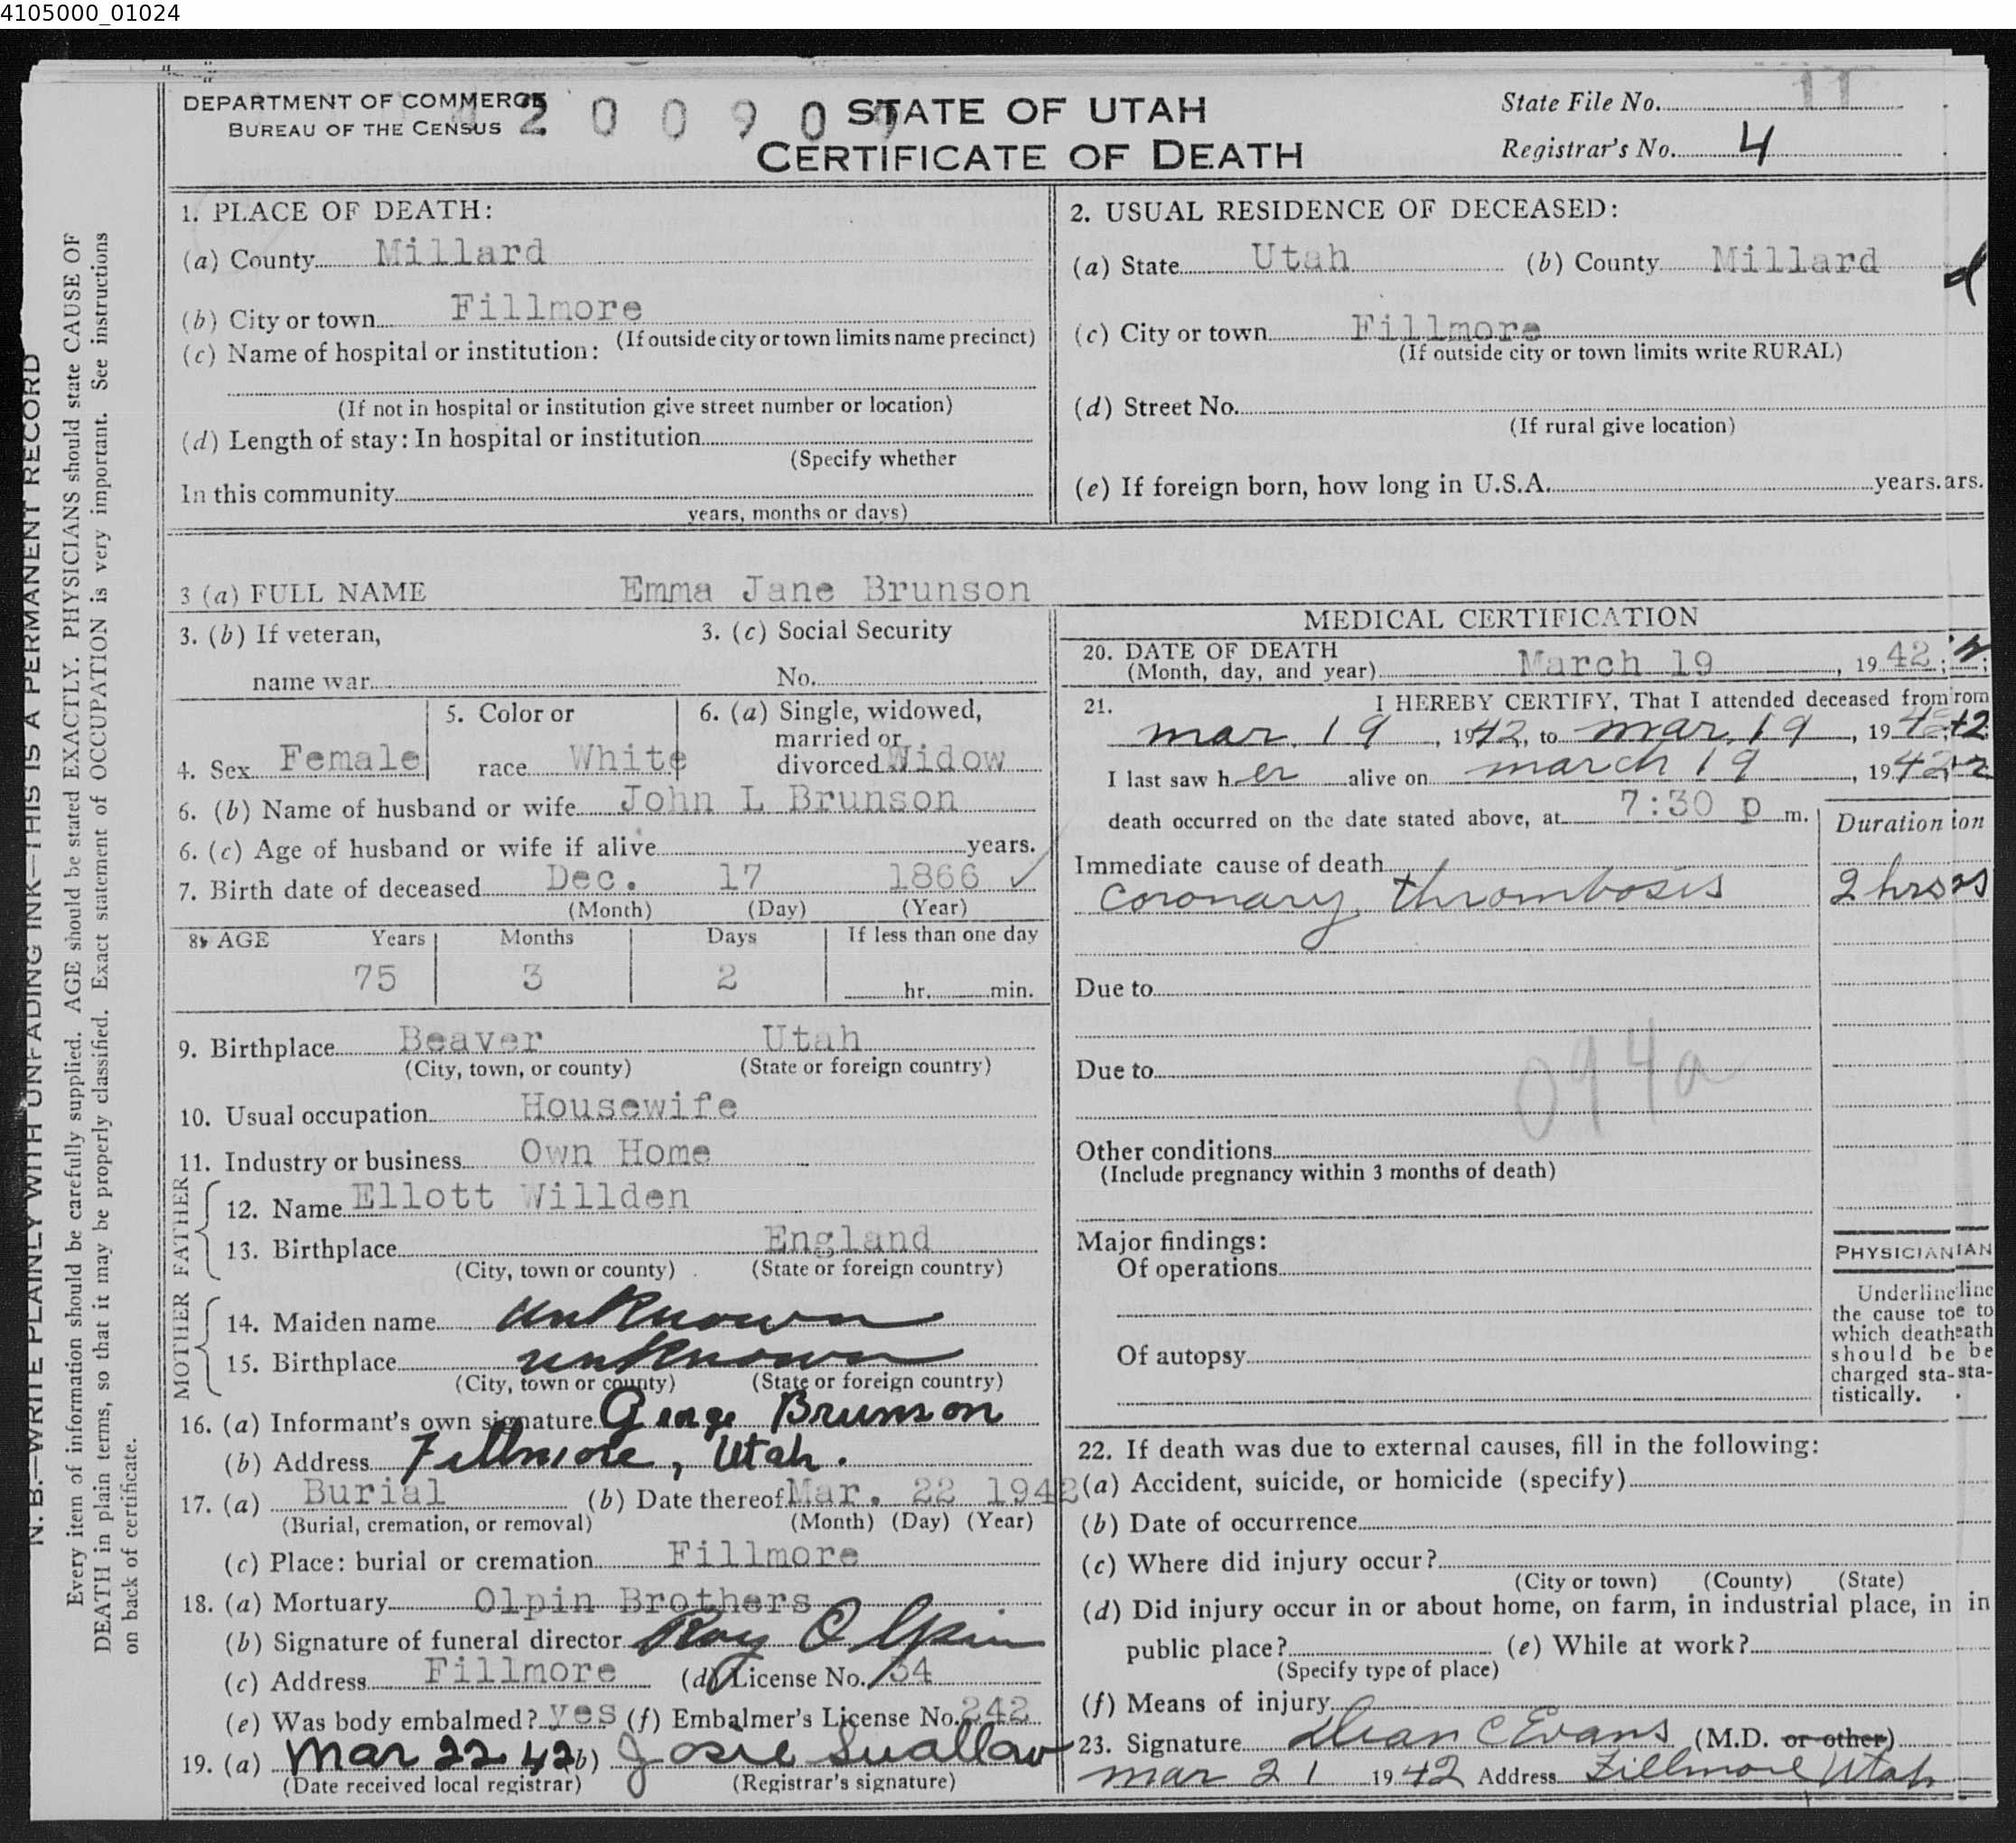 4105000_01024
DEPARTMENT OF COMMERCE
BUREAU OF THE CENSUS
2 0 0 9 0 9
STATE OF UTAH
CERTIFICATE OF DEATH
State File No. 11
Registrar's No. 4
N. B.—WRITE PLAINLY WITH UNFADING INK—THIS IS A PERMANENT RECORD
Every item of information should be carefully supplied. AGE should be stated EXACTLY. PHYSICIANS should state CAUSE OF
DEATH in plain terms, so that it may be properly classified. Exact statement of OCCUPATION is very important. See instructions
on back of certificate.
1. PLACE OF DEATH:
(a) County Millard
(b) City or town Fillmore
(If outside city or town limits name precinct)
(c) Name of hospital or institution:
(If not in hospital or institution give street number or location)
(d) Length of stay: In hospital or institution
(Specify whether
In this community
years, months or days)
2. USUAL RESIDENCE OF DECEASED:
(a) State Utah (b) County Millard
(c) City or town Fillmore
(If outside city or town limits write RURAL)
(d) Street No.
(If rural give location)
(e) If foreign born, how long in U.S.A. years. ars.
3 (a) FULL NAME Emma Jane Brunson
3. (b) If veteran, 3. (c) Social Security
name war No.
4. Sex Female
5. Color or
race White
6. (a) Single, widowed,
married or
divorced Widow
6. (b) Name of husband or wife John L Brunson
6. (c) Age of husband or wife if alive years.
7. Birth date of deceased Dec. 17 1866 ✓
(Month) (Day) (Year)
8. AGE Years Months Days If less than one day
75 3 2 hr. min.
9. Birthplace Beaver Utah
(City, town, or county) (State or foreign country)
10. Usual occupation Housewife
11. Industry or business Own Home
FATHER
12. Name Ellott Willden
13. Birthplace England
(City, town or county) (State or foreign country)
MOTHER
14. Maiden name unknown
15. Birthplace unknown
(City, town or county) (State or foreign country)
16. (a) Informant's own signature George Brunson
(b) Address Fillmore, Utah.
17. (a) Burial (b) Date thereof Mar. 22 1942
(Burial, cremation, or removal) (Month) (Day) (Year)
(c) Place: burial or cremation Fillmore
18. (a) Mortuary Olpin Brothers
(b) Signature of funeral director Roy Olpin
(c) Address Fillmore (d) License No. 54
(e) Was body embalmed? yes (f) Embalmer's License No. 242
19. (a) Mar 22 42 (b) Josie Swallow
(Date received local registrar) (Registrar's signature)
MEDICAL CERTIFICATION
20. DATE OF DEATH
(Month, day, and year) March 19, 1942;
21. I HEREBY CERTIFY, That I attended deceased from rom
mar. 19, 1942, to mar, 19, 1942
I last saw her alive on march 19, 1942
death occurred on the date stated above, at 7:30 p m.
Duration ion
Immediate cause of death
Coronary thrombosis 2 hrs rs
Due to
Due to
094a
Other conditions
(Include pregnancy within 3 months of death)
Major findings:
Of operations
Of autopsy
PHYSICIAN IAN
Underline line
the cause to e to
which death eath
should be be
charged sta- sta-
tistically.
22. If death was due to external causes, fill in the following:
(a) Accident, suicide, or homicide (specify)
(b) Date of occurrence
(c) Where did injury occur?
(City or town) (County) (State)
(d) Did injury occur in or about home, on farm, in industrial place, in in
public place? (e) While at work?
(Specify type of place)
(f) Means of injury
23. Signature Dean C Evans (M.D. or other)
mar 21 1942 Address Fillmore Utah